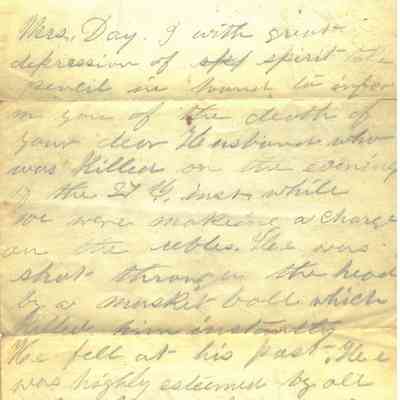 Mrs. Day. I with great
depression of spirit take
pencil in hand to infor
m you of the death of
your dear Husband who
was killed on the evening
of the 27 inst. while
we were makeing a charge
on the rebles. Hee was
shot through the head
by a muskit ball which
killed him instantly
Hee fell at his post. Hee
was highly esteemed by all